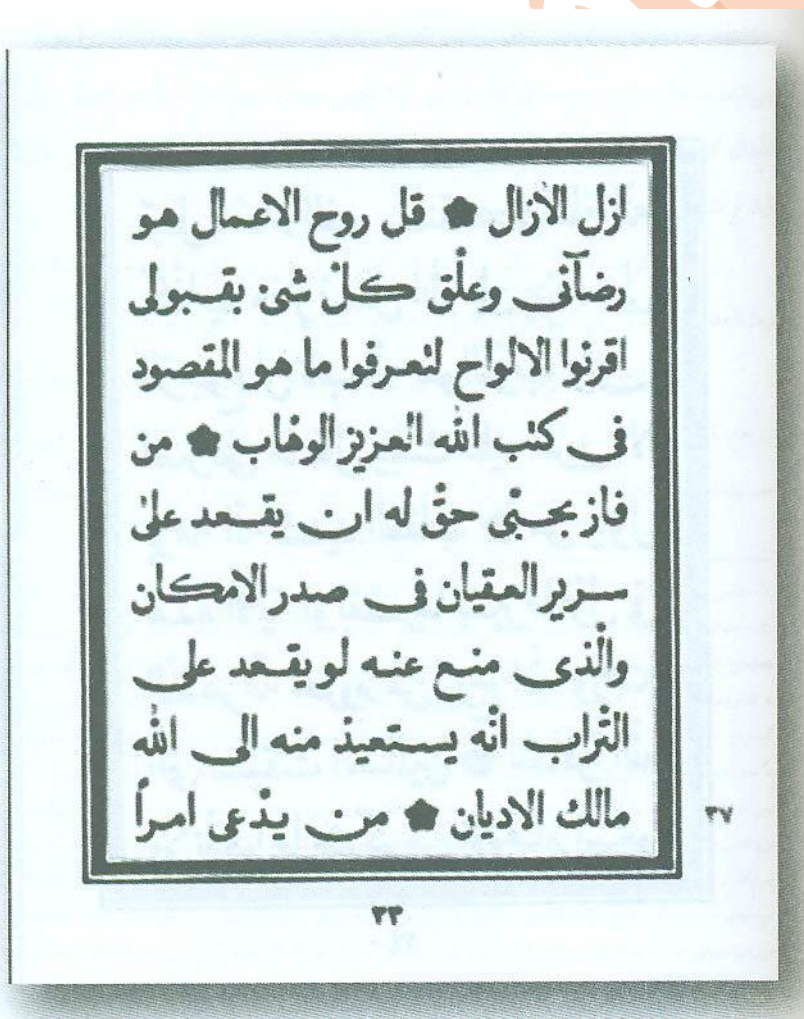 ازل الآزال ★ قل روح الاعمال هو
رضآئى وعلّق كلّ شئ بقبولى
اقرئوا الالواح لتعرفوا ما هو المقصود
فى كتب الله العزيز الوهّاب ★ من
فاز بحبّى حقّ له ان يقعد على
سرير العقيان فى صدر الامكان
والّذى منع عنه لو يقعد على
التّراب انّه يستعيذ منه الى الله
مالك الاديان ★ من يدّعى امراً
٣٧
٣٣